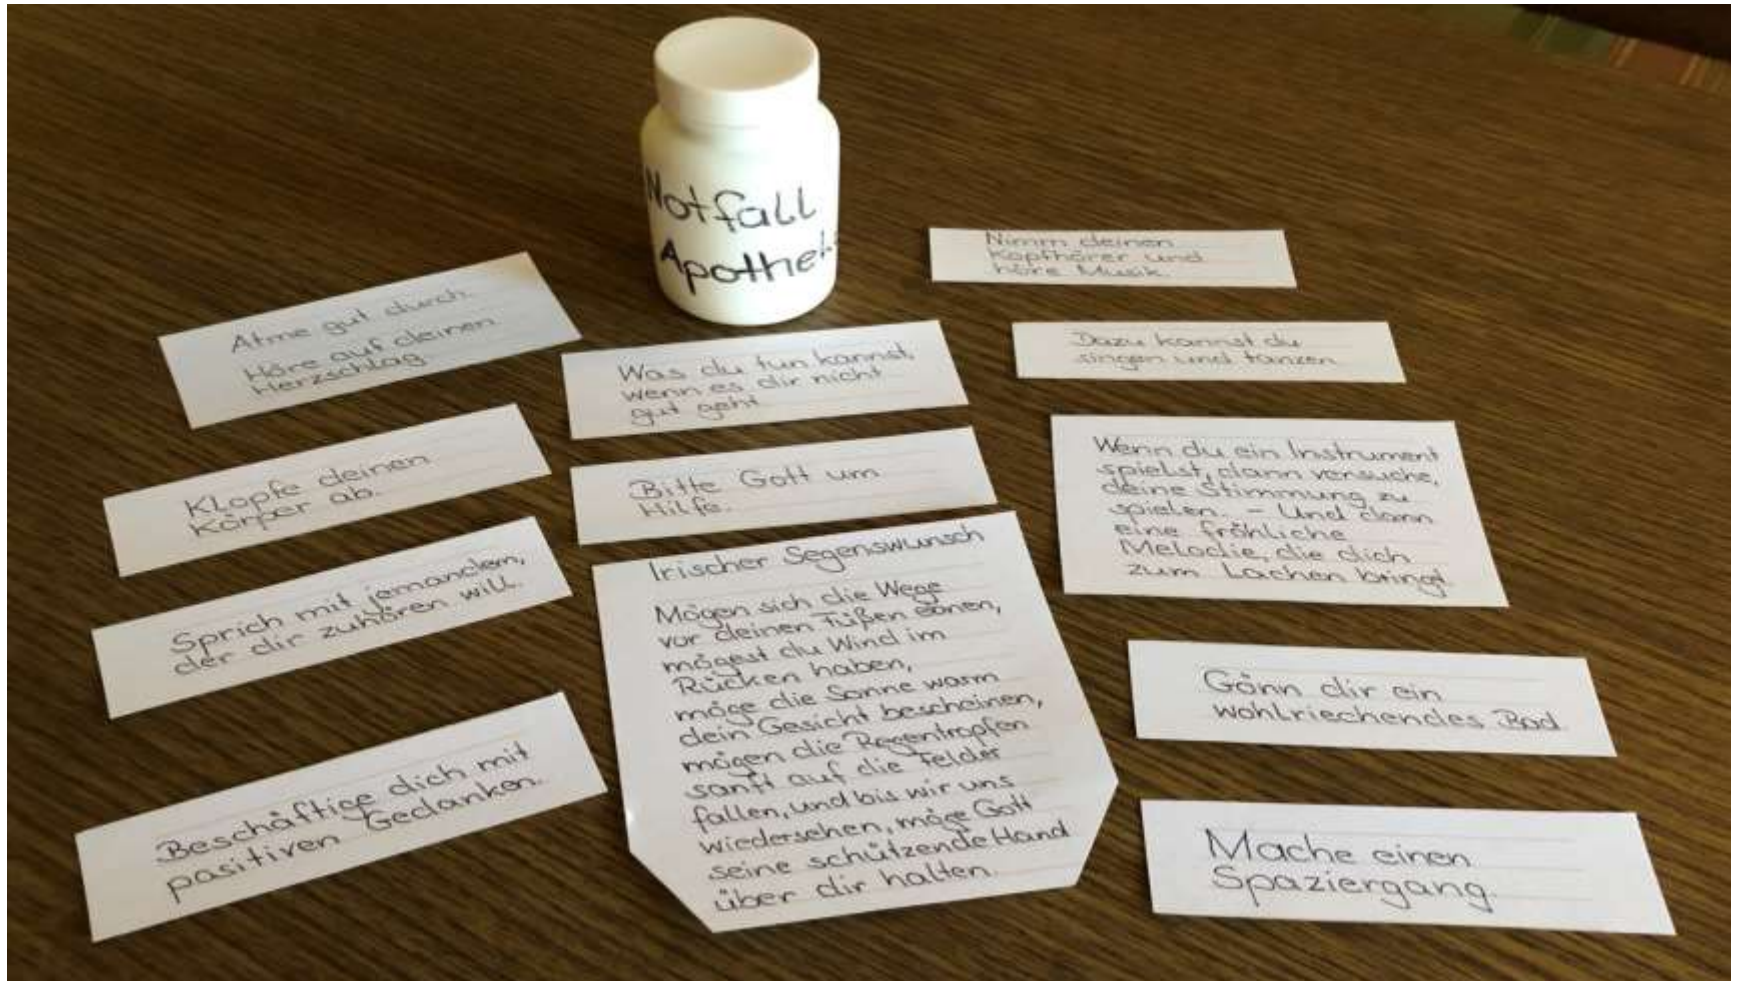 Notfall
Apothek
Atme gut durch.
Höre auf deinen
Herzschlag
Klopfe deinen
Körper ab.
Sprich mit jemandem,
der dir zuhören will.
Beschäftige dich mit
positiven Gedanken.
Was du tun kannst,
wenn es dir nicht
gut geht
Bitte Gott um
Hilfe.
Irischer Segenswunsch
Mögen sich die Wege
vor deinen Füßen ebnen,
mögest du Wind im
Rücken haben,
möge die Sonne warm
dein Gesicht bescheinen,
mögen die Regentropfen
sanft auf die Felder
fallen, und bis wir uns
wiedersehen, möge Gott
seine schützende Hand
über dir halten.
Nimm deinen
Kopfhörer und
höre Musik.
Dazu kannst du
singen und tanzen
Wenn du ein Instrument
spielst, dann versuche,
deine Stimmung zu
spielen. – Und dann
eine fröhliche
Melodie, die dich
zum Lachen bringt
Gönn dir ein
wohlriechendes Bad
Mache einen
Spaziergang